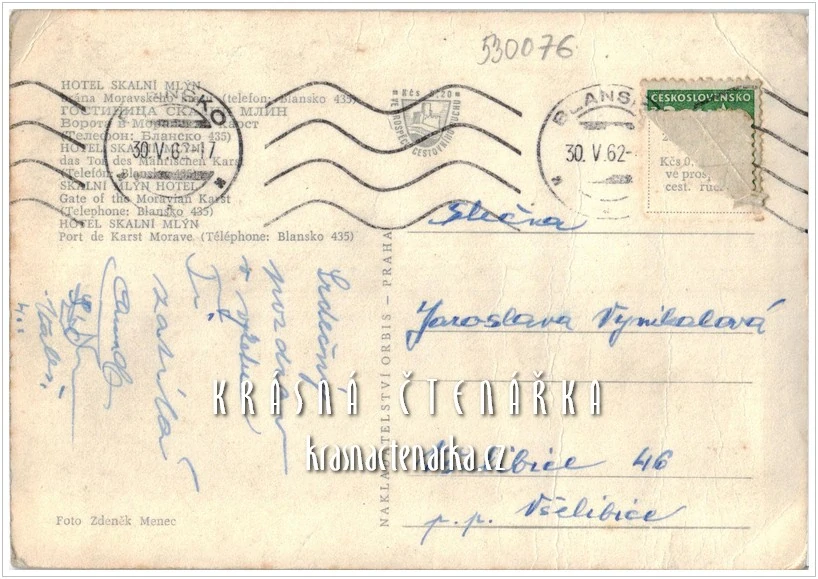 530076
HOTEL SKALNÍ MLÝN
Brána Moravského (telefon: Blansko 435)
ГОСТИНИЦА МЛИН
Ворота в Карст
(Телефон: Бланско 435)
HOTEL
das Tor des Mährischen Karst
(Telefon: Blansko 435)
SKALNÍ MLÝN HOTEL
Gate of the Moravian Karst
(Telephone: Blansko 435)
HOTEL SKALNÍ MLÝN
Port de Karst Morave (Téléphone: Blansko 435)
30.V.62-17
Kčs 0.20
VE PROSPĚCH CESTOVNÍHO RUCHU
BLANSKO
30.V.62-
ČESKOSLOVENSKO
Kčs 0,
vé prosp
cest. ruc
Slečna
Jaroslava Vynikalová
46
p.p. Všelibice
Srdečný
pozdrav
z výletu
Ti
zasílá
NAKLADATELSTVÍ ORBIS – PRAHA
KRÁSNÁ ČTENÁŘKA
krasnactenarka.cz
Foto Zdeněk Menec